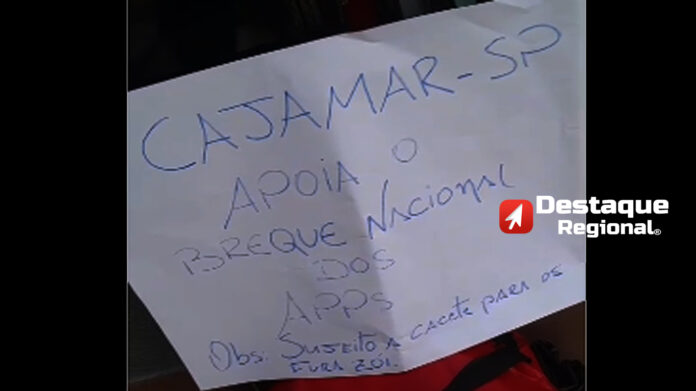 CAJAMAR-SP
APOIA O
BREQUE NACIONAL
DOS
APPS
Obs: SUJEITO A CACETE PARA OS
FURA ZOI.
Destaque
Regional®